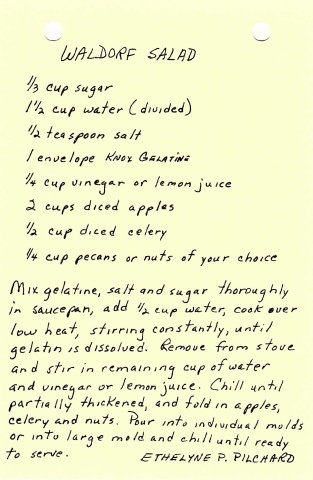 WALDORF SALAD
1/3 cup sugar
1 1/2 cup water (divided)
1/2 teaspoon salt
1 envelope KNOX GELATINE
1/4 cup vinegar or lemon juice
2 cups diced apples
1/2 cup diced celery
1/4 cup pecans or nuts of your choice
Mix gelatine, salt and sugar thoroughly
in saucepan, add 1/2 cup water, cook over
low heat, stirring constantly, until
gelatin is dissolved. Remove from stove
and stir in remaining cup of water
and vinegar or lemon juice. Chill until
partially thickened, and fold in apples,
celery and nuts. Pour into individual molds
or into large mold and chill until ready
to serve. ETHELYNE P. PILCHARD